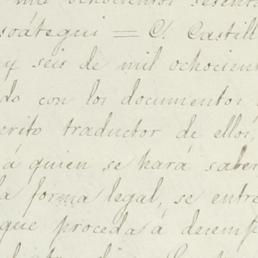 mil ochocientos sesent
soátegui = C. Castill
y seis de mil ochocient
do con los documentos
crito traductor de ellos,
á quien se hará saber
la forma legal, se entre
que proceda á desemp